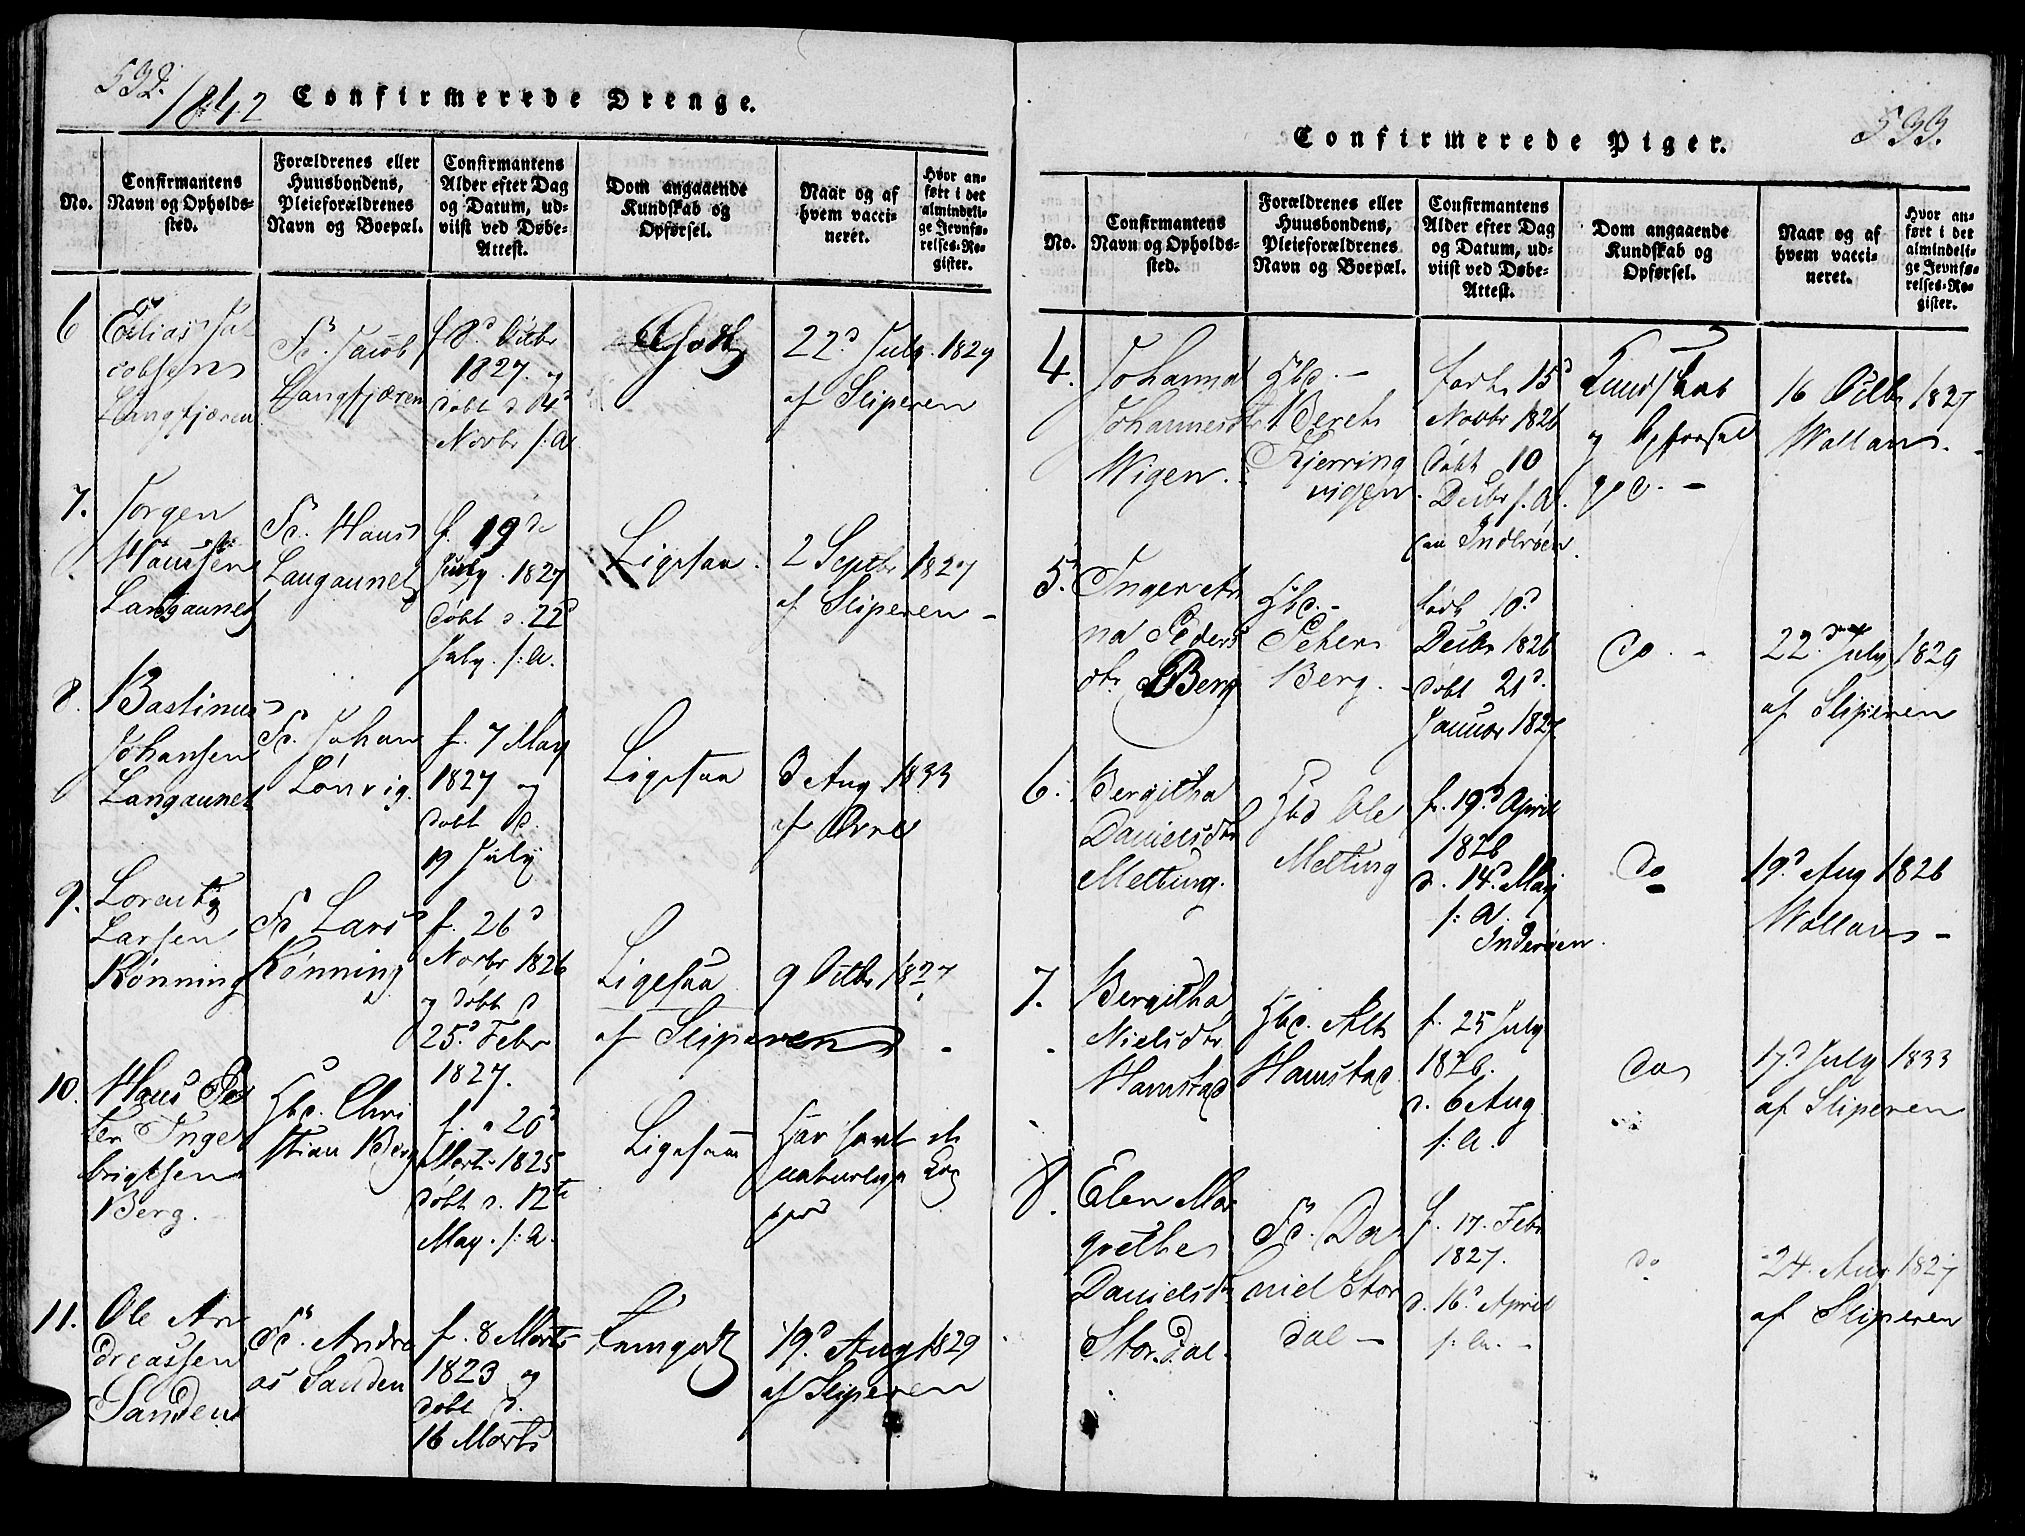 532.
1842 Confirmerede Drenge.
No.
Confirmantens
Navn og Opholds-
sted.
Forældrenes eller
Huusbondens,
Pleieforældrenes
Navn og Boepæl.
Confirmantens
Alder efter Dag
og Datum, ud-
viist ved Døbe-
Attest.
Dom angaaende
Kundskab og
Opførsel.
Naar og af
hvem vacci-
neret.
Hvor an-
ført i det
almindeli-
ge Jevnfø-
relses-Re-
gister.
6
Elias Ja-
cobsen
Langfjæren
Fd. Jacob
Langfjæren
f. 8d Octbr
1827. og
døbt d. 4d
Novbr s: A
Godt
22d July 1829
af Sliperen
7.
Jørgen
Hansen
Langaunet
Fd. Hans
Langaunet
f. 19d
July. 1827
døbt d. 22d
July. s: A.
Ligesaa.
2 Septbr 1827
af Sliperen -
8.
Bastinus
Johansen
Langaunet
Fd. Johan
Lønvig.
f. 7 May
1827 og
døbt d.
19 July
Ligesaa
3 Aug 1833
af
9.
Lorentz
Larsen
Rønning
Fd Lars
Rønning
f. 26d
Novbr 1826
og døbt d
25d Febr
1827.
Ligesaa
9 Octbr 1827
af Sliperen
10.
Hans Pe
ter Inge
brigtsen
Berg.
Hbd. Chri
stian Berg
f. 20d
Marts 1825
døbt d. 12te
May. s: A.
Ligesaa
Har havt de
naturlige Kop
per
11.
Ole An
dreassen
Sanden
Fd. Andre
as Sanden
f. 8 Marts
1823 og
døbt d.
16 Marts
Temgodt
19d Aug 1829
af Sliperen
533.
Confirmerede Piger.
No.
Confirmantens
Navn og Opholds-
sted.
Forældrenes eller
Huusbondens,
Pleieforældrenes
Navn og Boepæl.
Confirmantens
Alder efter Dag
og Datum, ud-
viist ved Døbe-
Attest.
Dom angaaende
Kundskab og
Opførsel.
Naar og af
hvem vacci-
neret.
Hvor an-
ført i det
almindeli-
ge Jevnfø-
relses-Re-
gister.
4.
Johanna
Johannesdtr
Wigen.
Hbd. -
Bereth
Kjerring
vigen
født 15d
Novbr 1826
døbt 10
Decbr s. A.
paa Inderøen.
Kundskab
og Opførsel
god. -
16 Octbr 1827
Wollan -
5.
Inger An
na Peders
dtr Berg
Hbd. -
Peter
Berg. -
født 10d
Decbr 1826
døbt 21d.
Januar 1827
do. -
22d July 1829
af Sliperen
6.
Bergitha
Danielsdtr
Meltung.
Hbd Ole
Meltung
f. 19d April
1826
d. 14d May
s: A.
Inderøen.
do
19d Aug 1826
Wollan -
7.
Bergitha
Nielsdtr
Hamstad
Hbd.
Hamstad
f. 25 July
1826.
d. 6 Aug
s: A.
do
17d July 1833
af Sliperen
8.
Elen Mar
grethe
Danielsdtr
Stordal.
Fd. Da
niel Stor
dal -
f. 17. Febr
1827.
d. 16d April
s: A. -
do
24 Aug 1827
af Sliperen